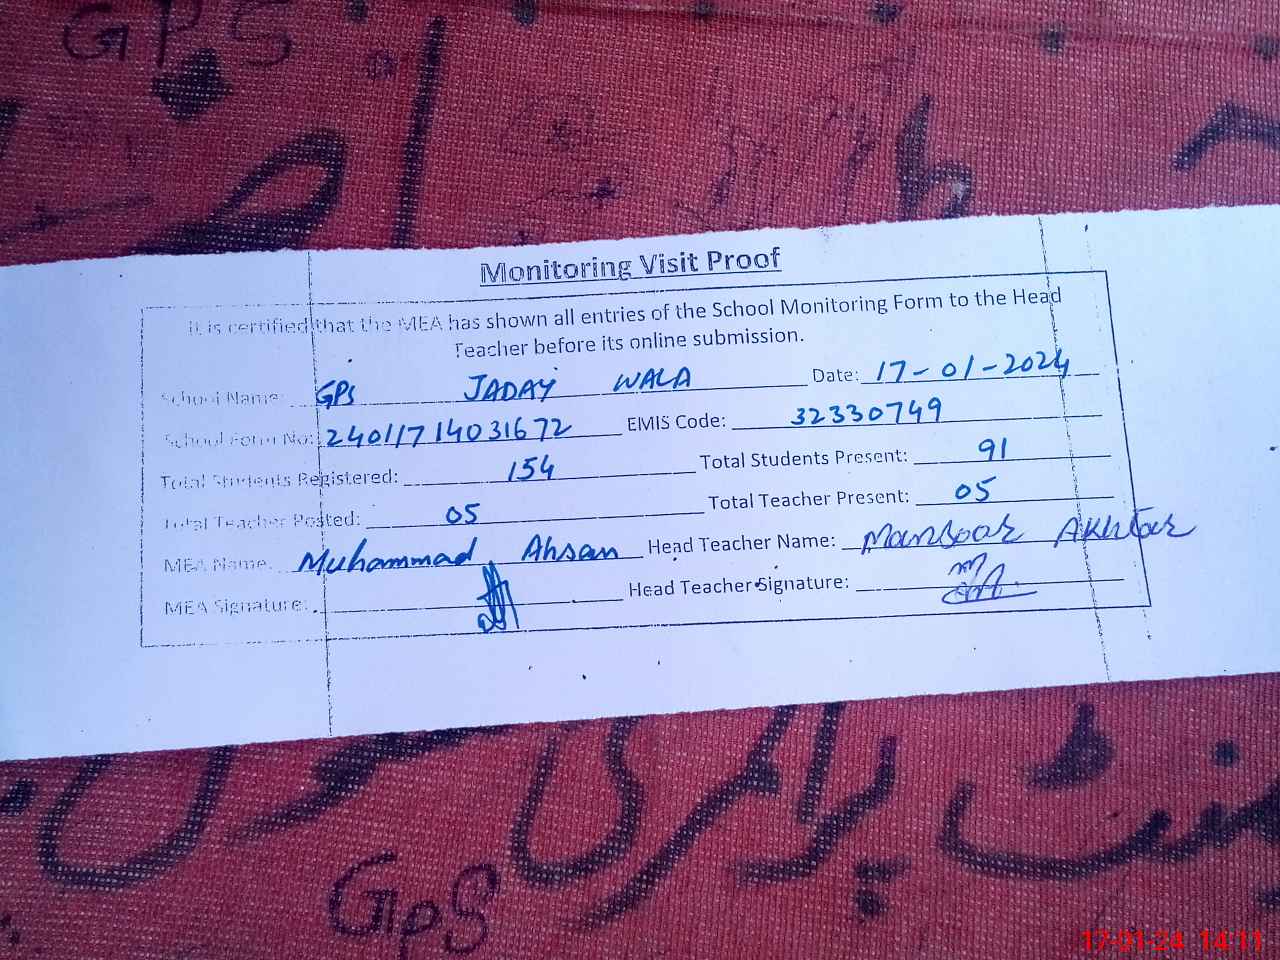 GPS
Monitoring Visit Proof
It is certified that the MEA has shown all entries of the School Monitoring Form to the Head
Teacher before its online submission.
School Name: GPS JADAY WALA Date: 17-01-2024
School Form No: 24011714031672 EMIS Code: 32330749
Total Students Registered: 154 Total Students Present: 91
Total Teacher Posted: 05 Total Teacher Present: 05
MEA Name: Muhammad Ahsan Head Teacher Name: Mansoor Akhtar
MEA Signature: Head Teacher Signature:
گورنمنٹ پرائمری سکول
GPS
17-01-24 14:11